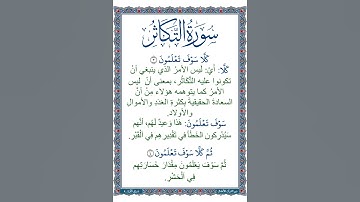 سُورَةُ التَّكَاثُرِ
كَلَّا سَوْفَ تَعْلَمُونَ ③
كَلَّا: أَيْ: ليس الأمرُ الذي ينبغي أنْ
تكونوا عليه التَّكَاثُر، بمعنى أنْ ليس
الأمرُ كما يتوهمه هؤلاء مِنْ أنَّ
السعادة الحقيقية بكثرة العَدَدِ والأموال
والأولاد.
سَوْفَ تَعْلَمُونَ: هذا وَعِيدٌ لَهُم، أنَّهم
سَيُدْرِكون الخطأ في تَقْدِيرِهم في القَبْرِ.
ثُمَّ كَلَّا سَوْفَ تَعْلَمُونَ ④
ثُمَّ سَوْفَ يَعْلمُون مِقْدَارَ خَسَارَتِهم
في الحَشْرِ.